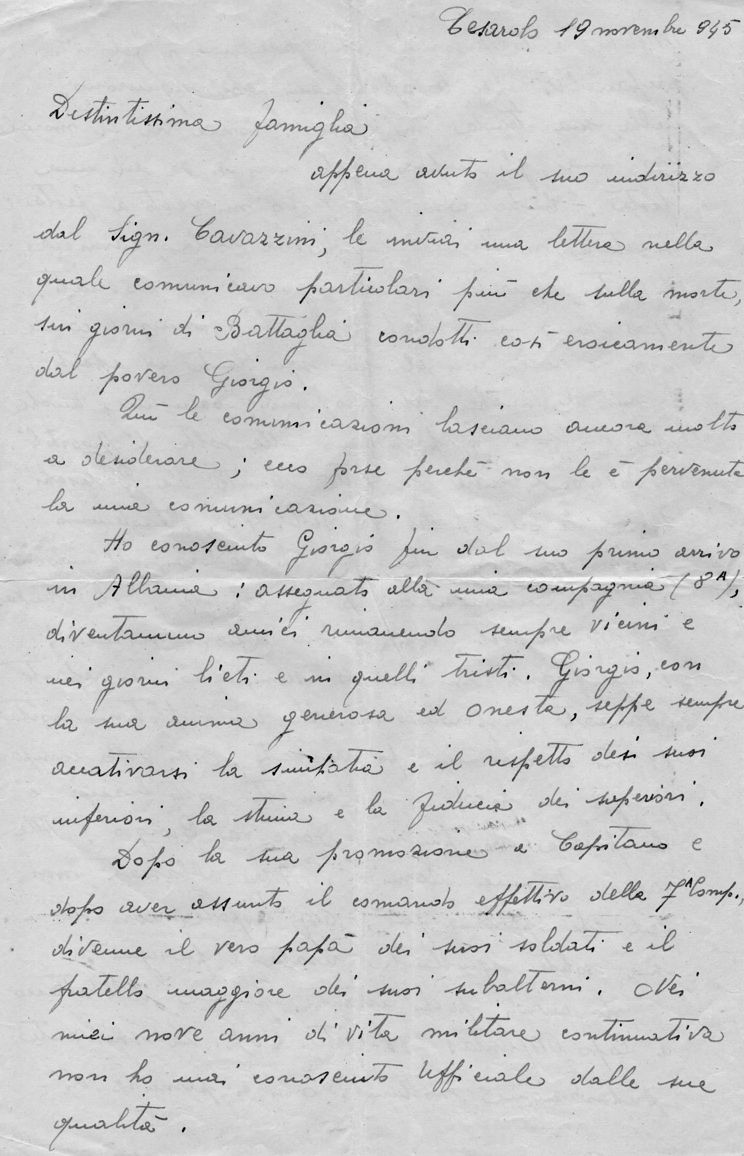 Cesarolo 19 novembre 945
Distintissima famiglia
appena avuto il suo indirizzo
dal Sign. Cavazzini, le inviai una lettera nella
quale comunicavo particolari più che sulla morte,
sui giorni di Battaglia condotti così eroicamente
dal povero Giorgio.
Qui le comunicazioni lasciano ancora molto
a desiderare; ecco forse perché non le è pervenuta
la mia comunicazione.
Ho conosciuto Giorgio fin dal suo primo arrivo
in Albania: assegnato alla mia compagnia (8ᴬ),
diventammo amici rimanendo sempre vicini e
nei giorni lieti e in quelli tristi. Giorgio, con
la sua anima generosa ed onesta, seppe sempre
accativarsi la simpatia e il rispetto desi suoi
inferiori, la stima e la fiducia dei superiori.
Dopo la sua promozione a Capitano e
dopo aver assunto il comando effettivo della 7ᴬ Comp.,
divenne il vero papà dei suoi soldati e il
fratello maggiore dei suoi subalterni. Nei
miei nove anni di vita militare continuativa
non ho mai conosciuto Ufficiale dalle sue
qualità.